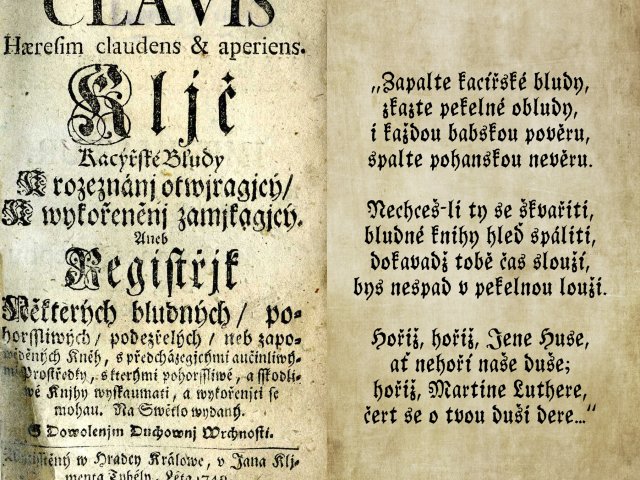 CLAVIS
Hæresim claudens & aperiens.
Kljč
Kacýřské Bludy
K rozeznánj otwjragjcý/
K wykořeněnj zamjkagjcý.
Aneb
Registřjk
Některých bludných / po=
horssliwých / podezřelých / neb zapo=
wěděných Kněh, s předcházegjcými aučinliwý=
mi Prostředky, s kterými pohorssliwé, a sskodli=
wé Knjhy wyskaumati, a wykořeniti se
mohau. Na Swětlo wydaný.
S Dowolenjm Duchownj Wrchnosti.
w Hradcy Králowe, v Jana Klj=
menta Tybély, Léta
„Zapalte kacířské bludy,
zkazte pekelné obludy,
i každou babskou pověru,
spalte pohanskou nevěru.
Nechceš-li ty se škvařiti,
bludné knihy hleď spáliti,
dokavadž tobě čas slouží,
bys nespad v pekelnou louži.
Hoříž, hoříž, Jene Huse,
ať nehoří naše duše;
hoříž, Martine Luthere,
čert se o tvou duši dere...“